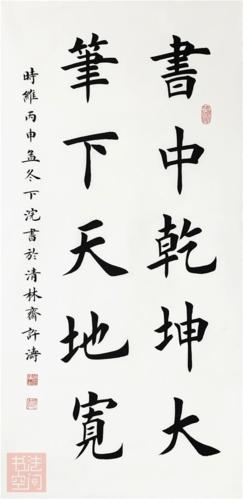 書中乾坤大
筆下天地寬
時維丙申孟冬下浣書於清林齋許濤
书法空间